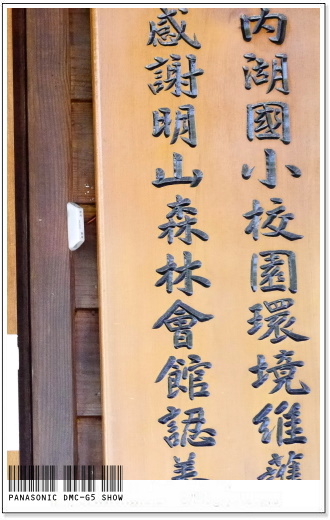 內湖國小校園環境維護
感謝明山森林會館認養
PANASONIC DMC-G5 SHOW